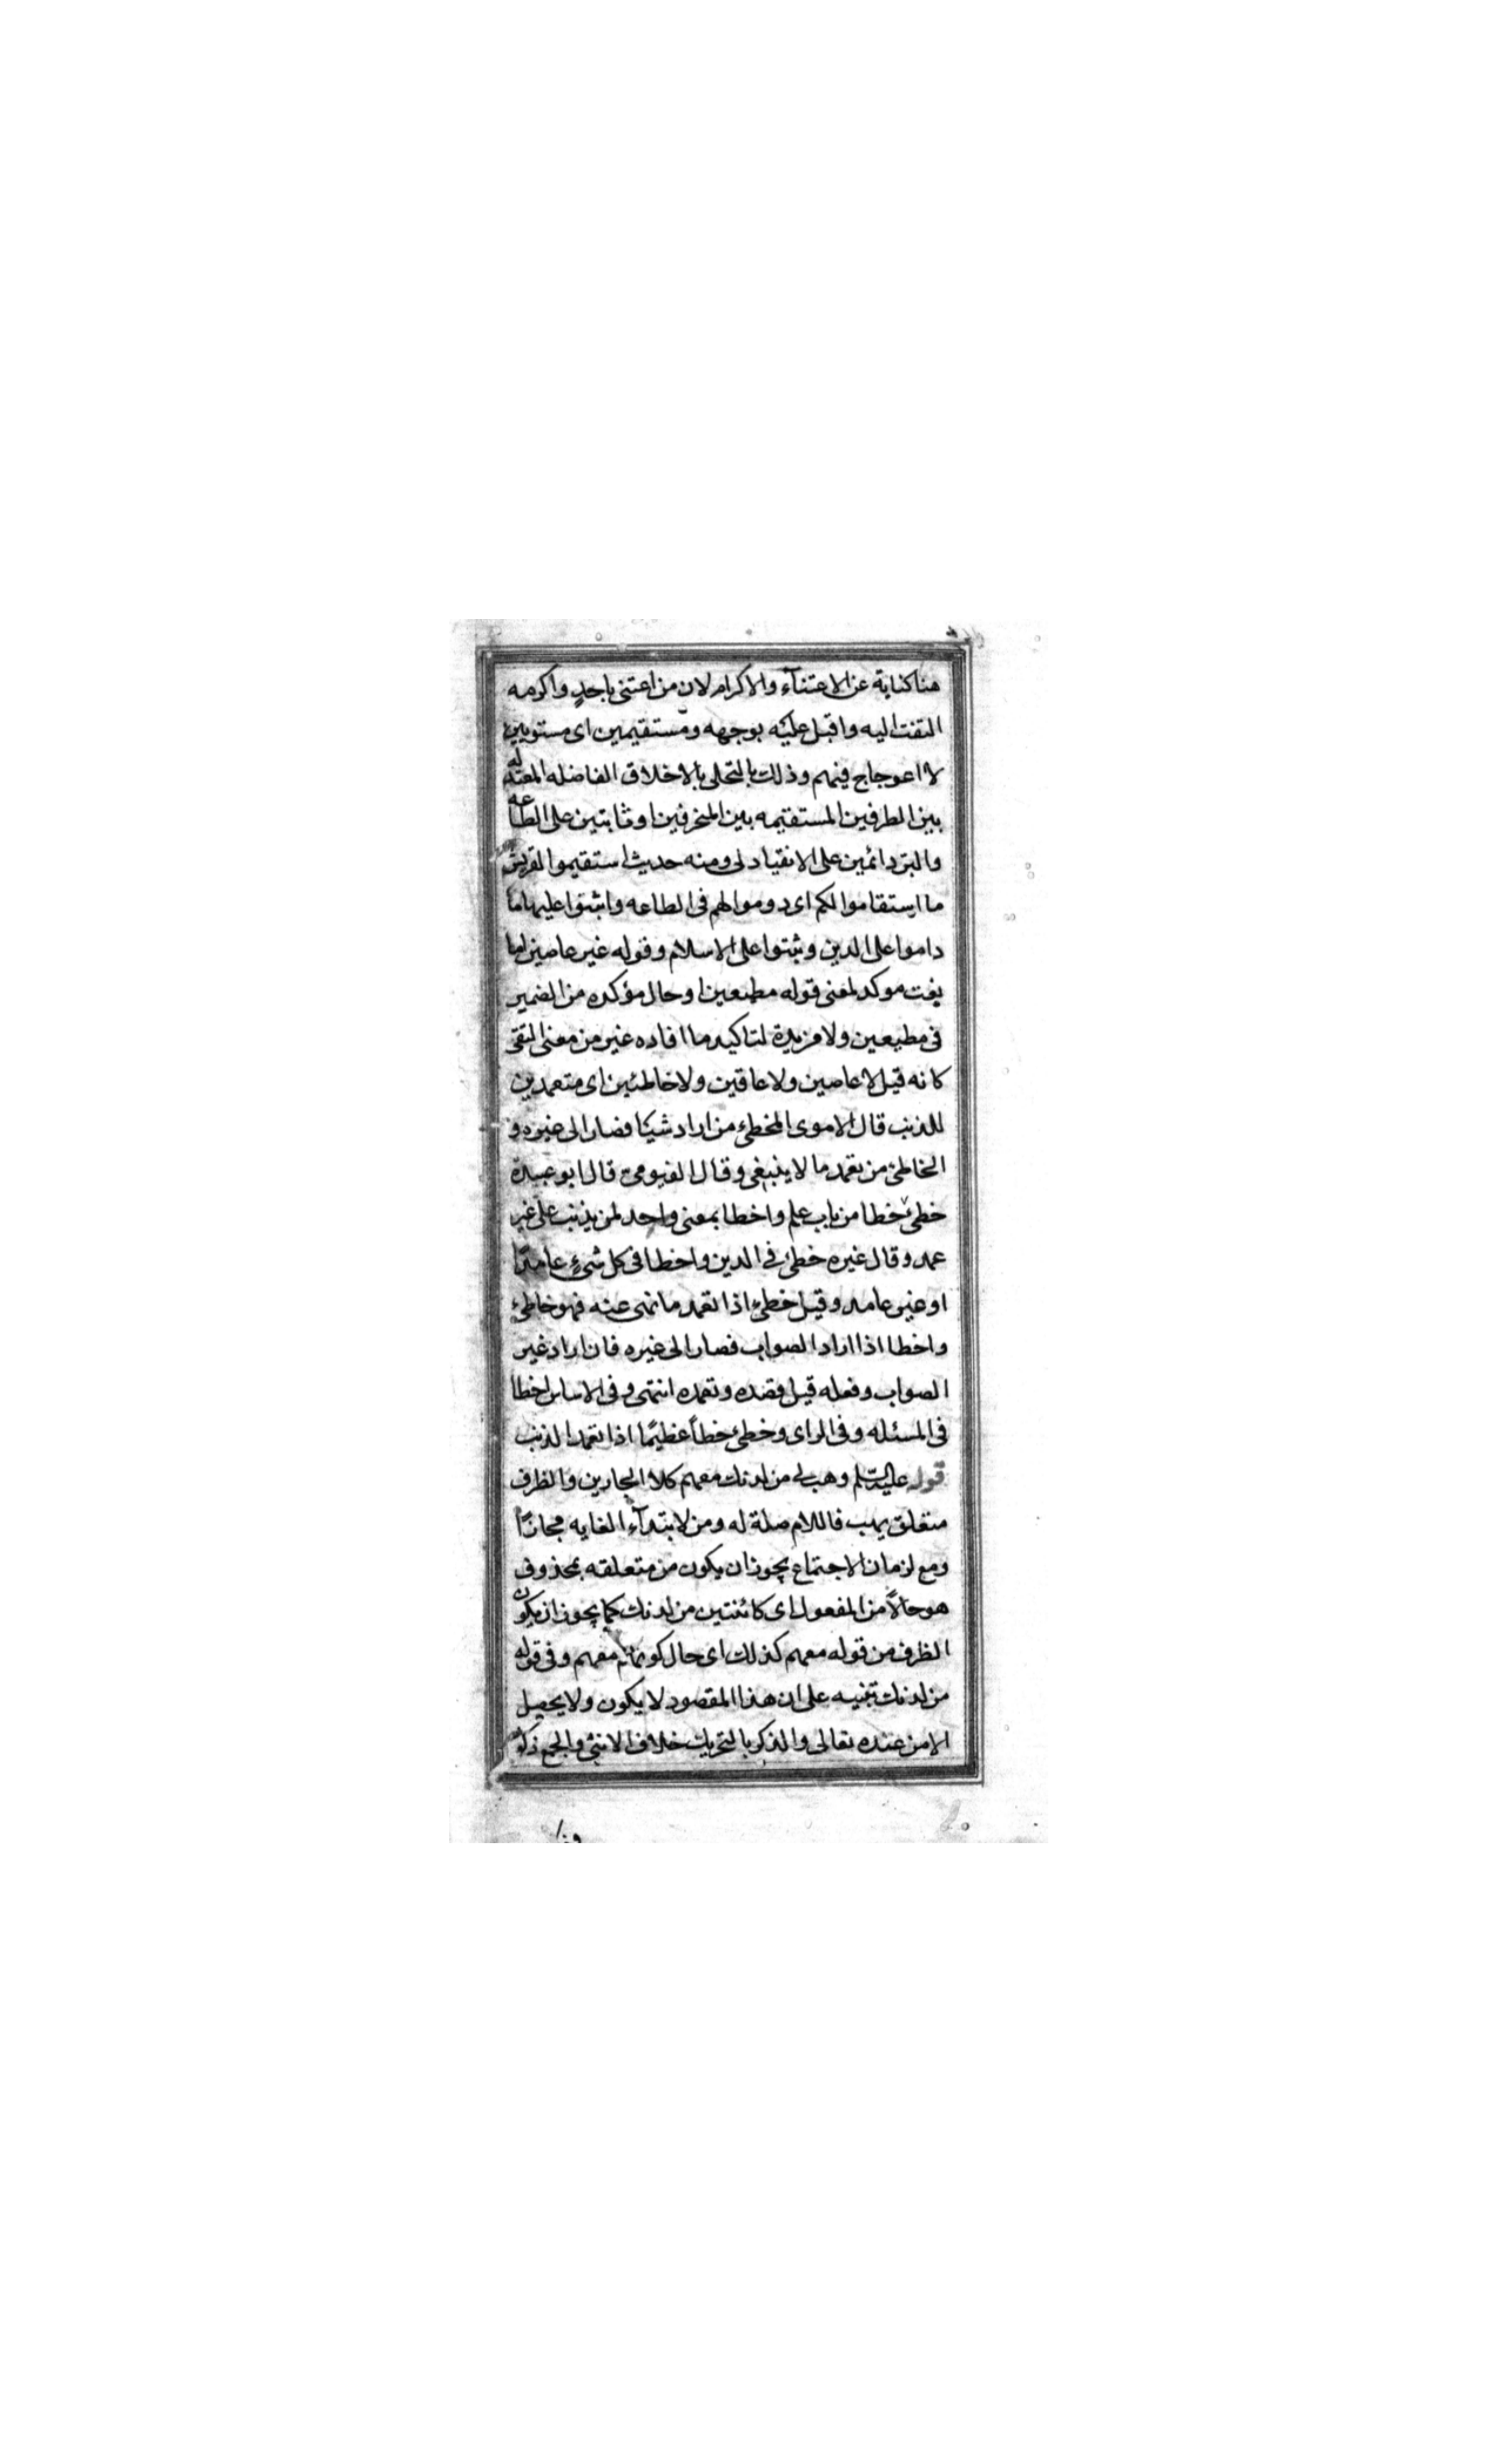 هنا كناية عن الاعتنآء والاكرام لان من اعتنى باحدٍ واكرمه
التفت اليه واقبل عليه بوجهه ومستقيمين اى مستويين
لا اعوجاج فيهم وذلك بالتحلى بالاخلاق الفاضله المعتدله
بين الطرفين المستقيمه بين المنحرفين او ثابتين على الطاعه
والبر دائمين على الانقياد لى ومنه حديث استقيموا لقريش
ما استقاموا لكم اى دوموا لهم فى الطاعه واثبتوا عليها ما
داموا على الدين وثبتوا على الاسلام وقوله غير عاصين اما
نعت موكد لمعنى قوله مطيعين او حال مؤكده من الضمير
فى مطيعين ولا مزيدة لتاكيد ما افاده غير من معنى النفى
كانه قيل لا عاصين ولا عاقين ولا خاطئين اى متعمدين
للذنب قال الاموى المخطئ من اراد شيئا فصار الى غيره و
الخاطئ من تعمد ما لا ينبغى وقال الفيومى قال ابو عبيدة
خطئ خطا من باب علم واخطا بمعنى واحد لمن يذنب على غير
عمد وقال غيره خطئ فى الدين واخطا فى كل شىءٍ عامدًا
او غير عامد وقيل خطئ اذا تعمد ما نهى عنه فهو خاطئ
واخطا اذا اراد الصواب فصار الى غيره فان اراد غير
الصواب وفعله قيل قصده وتعمده انتهى وفى الاساس اخطا
فى المسئله وفى الراى وخطئ خطأً عظيمًا اذا تعمد الذنب
قوله عليه السّلم وهب لى من لدنك معهم كلا الجارين والظرف
متعلق بهب فاللام صلة له ومن لابتدآء الغايه مجازًا
ومع لزمان الاجتماع يجوز ان يكون من متعلقه بمحذوف
هو حالاً من المفعول اى كائنتين من لدنك كما يجوز ان يكون
الظرف من قوله معهم كذلك اى حال كونهم معهم وفى قوله
من لدنك تنبيه على ان هذا المقصود لا يكون ولا يحصل
الا من عنده تعالى والذكر بالتحريك خلاف الانثى والجمع ذكور